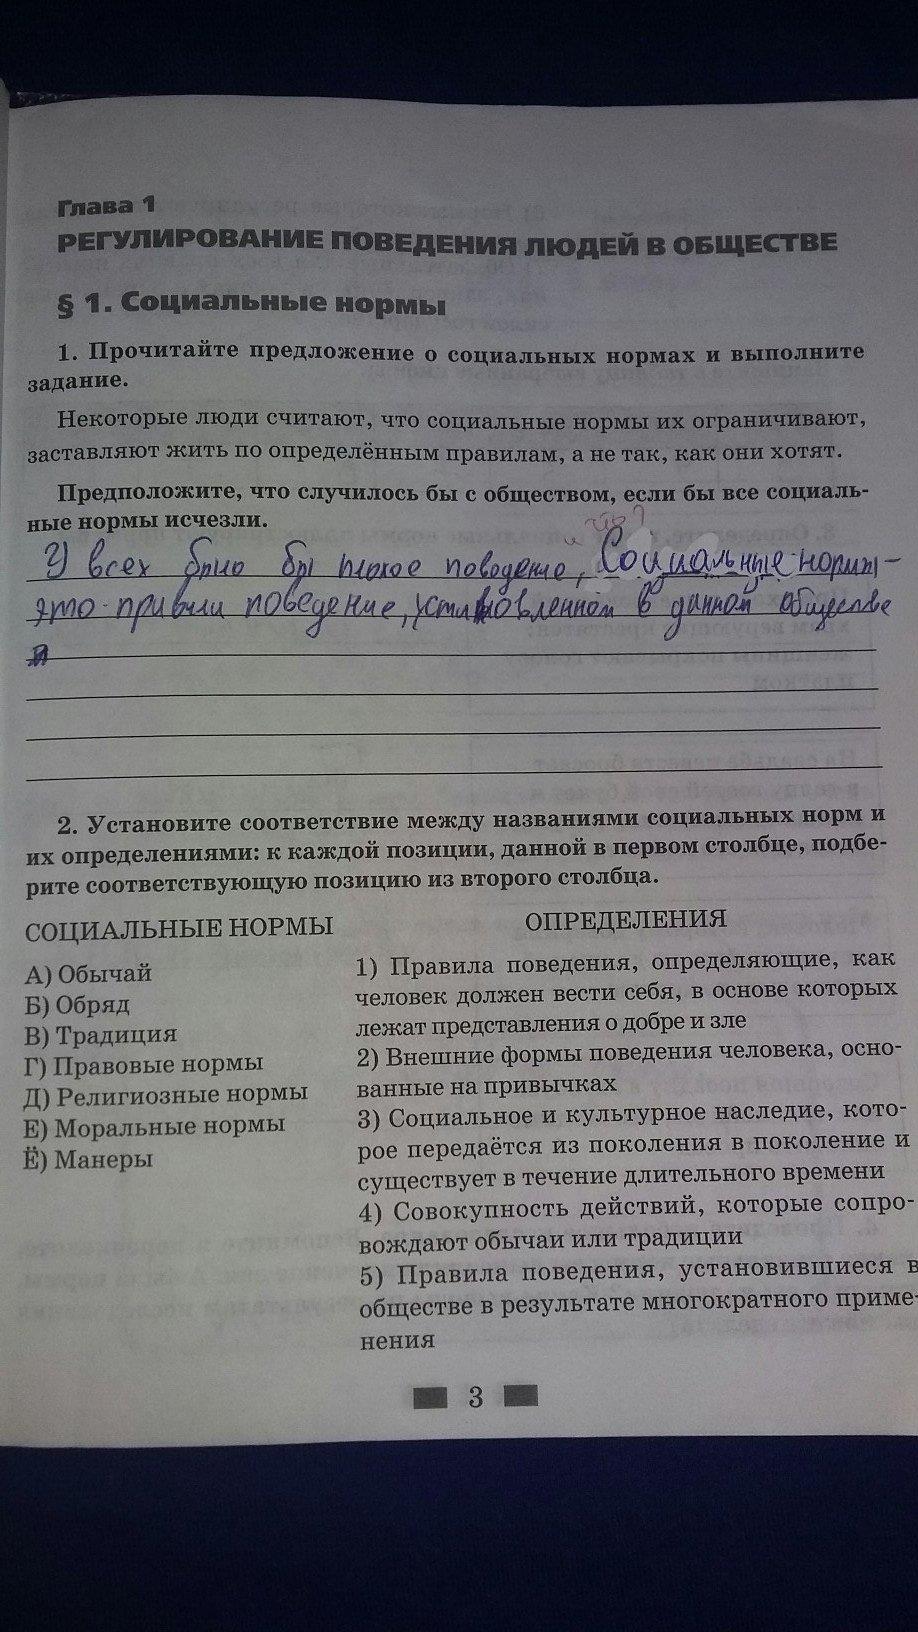 Глава 1
РЕГУЛИРОВАНИЕ ПОВЕДЕНИЯ ЛЮДЕЙ В ОБЩЕСТВЕ
§ 1. Социальные нормы
1. Прочитайте предложение о социальных нормах и выполните
задание.
Некоторые люди считают, что социальные нормы их ограничивают,
заставляют жить по определённым правилам, а не так, как они хотят.
Предположите, что случилось бы с обществом, если бы все социаль-
ные нормы исчезли.
и что?
У всех было бы плохое поводение, Социальные нормы -
это правила поведение, установленном в данной обществе
2. Установите соответствие между названиями социальных норм и
их определениями: к каждой позиции, данной в первом столбце, подбе-
рите соответствующую позицию из второго столбца.
СОЦИАЛЬНЫЕ НОРМЫ
А) Обычай
Б) Обряд
В) Традиция
Г) Правовые нормы
Д) Религиозные нормы
Е) Моральные нормы
Ё) Манеры
ОПРЕДЕЛЕНИЯ
1) Правила поведения, определяющие, как
человек должен вести себя, в основе которых
лежат представления о добре и зле
2) Внешние формы поведения человека, осно-
ванные на привычках
3) Социальное и культурное наследие, кото-
рое передаётся из поколения в поколение и
существует в течение длительного времени
4) Совокупность действий, которые сопро-
вождают обычаи или традиции
5) Правила поведения, установившиеся в
обществе в результате многократного приме-
нения
3